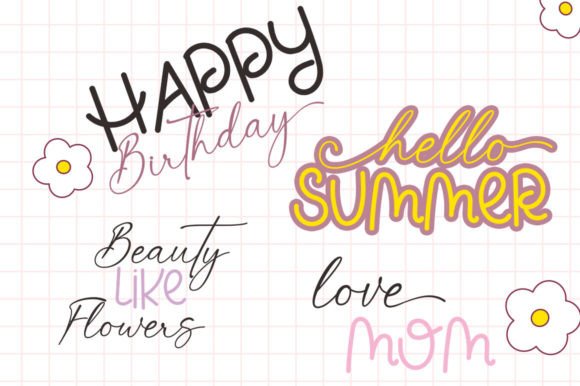 HAPPY
Birthday
hello
SUMMER
Beauty
LIKE
Flowers
love
MOM